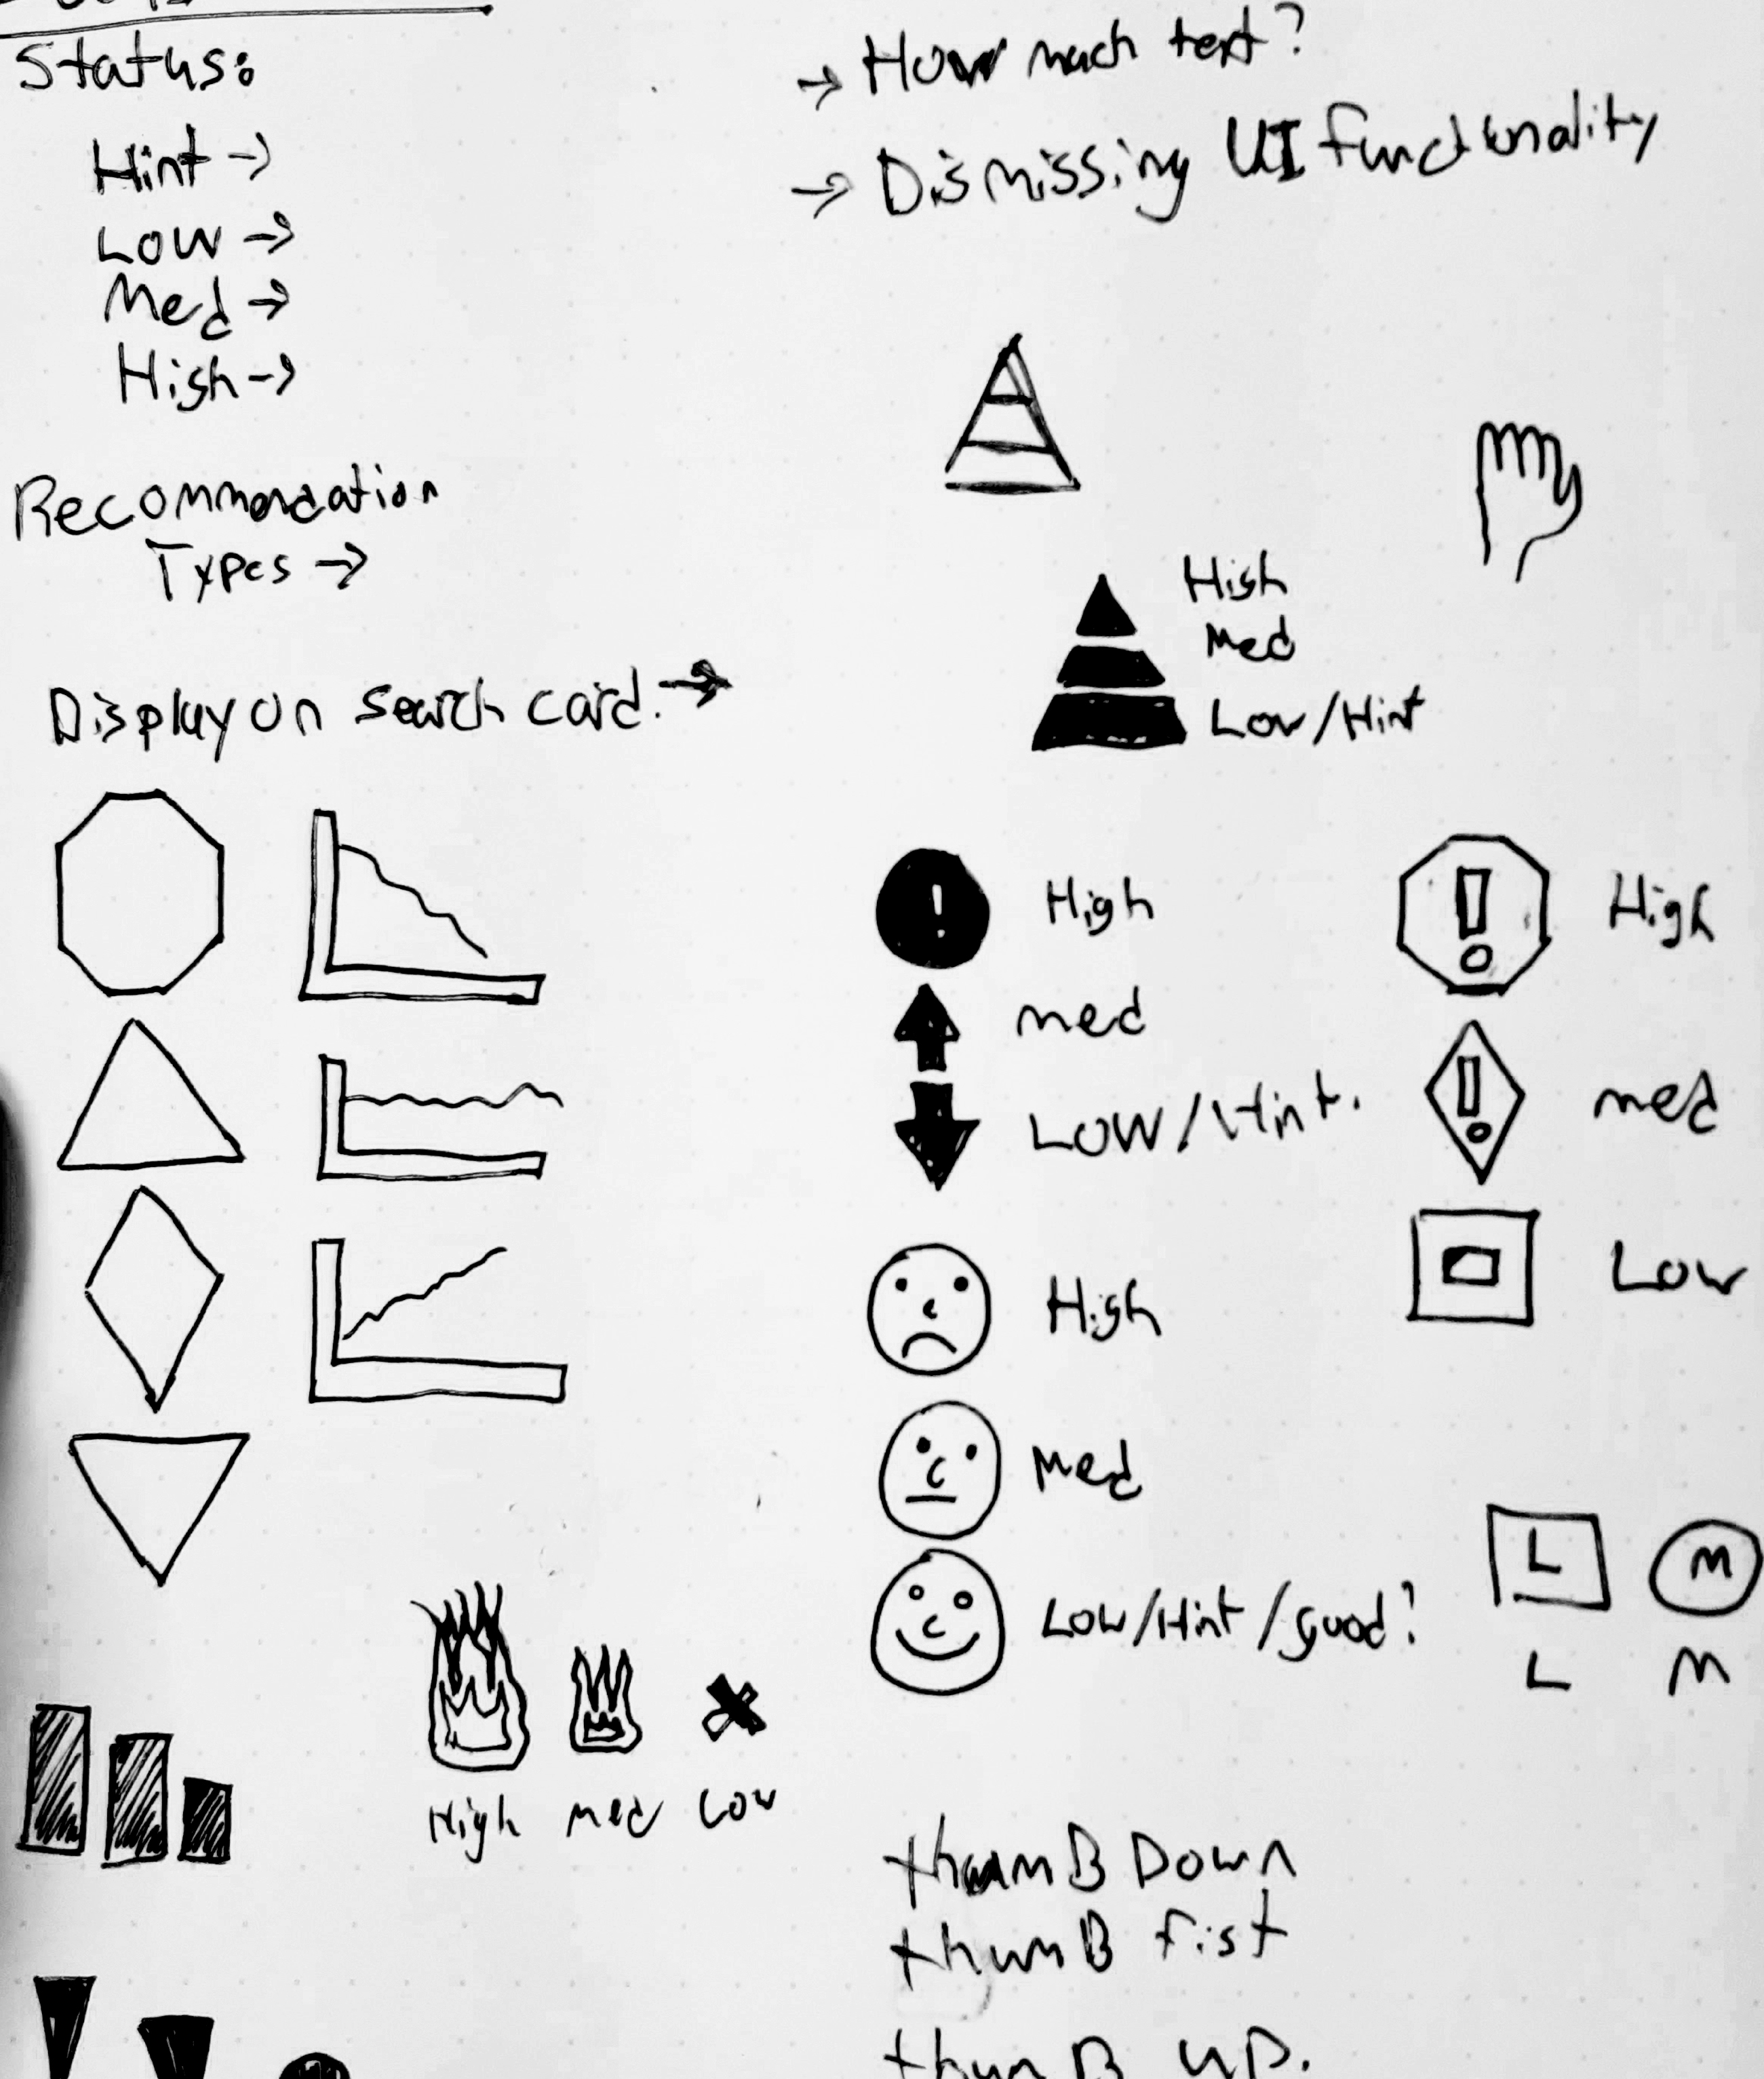 Status:
Hint →
Low →
Med →
High →
Recommendation
Types →
Display on search card. →
→ How much text?
→ Dismissing UI functionality
High
Med
Low/Hint
! High
med
Low/Hint.
! High
! med
Low
High
Med
Low/Hint/good?
L M
L M
High med Low
thumB Down
thumB fist
thumB up.